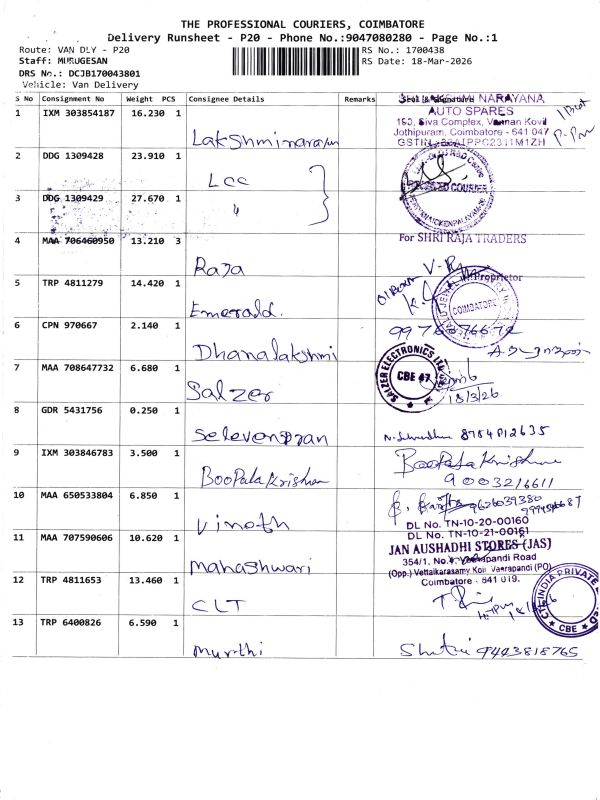 THE PROFESSIONAL COURIERS, COIMBATORE
Delivery Runsheet - P20 - Phone No.:9047080280 - Page No.:1
Route: VAN DLY - P20
RS No.: 1700438
Staff: MURUGESAN
RS Date: 18-Mar-2026
DRS No.: DCJB170043801
Vehicle: Van Delivery
S No Consignment No Weight PCS Consignee Details Remarks
1 IXM 303854187 16.230 1 Lakshminarayan
LAKSHMI NARAYANA
AUTO SPARES
Jothipuram, Coimbatore - 641 047
2 DDG 1309428 23.910 1 LCC
3 DDG 1309429 27.670 1 "
4 MAA 706460950 13.210 3 Raja
For SHRI RAJA TRADERS
Proprietor
5 TRP 4811279 14.420 1 Emerald.
COIMBATORE
6 CPN 970667 2.140 1 Dhanalakshmi
7 MAA 708647732 6.680 1 Salzer
SALZER ELECTRONICS LTD
CBE 47
18/3/26
8 GDR 5431756 0.250 1 Selevenspran
9 IXM 303846783 3.500 1 BooPalakrishan
BooPalakrishnan
9003216611
10 MAA 650533804 6.850 1 Vinoth
9626039380
DL No. TN-10-20-00160
DL No. TN-10-21-00161
11 MAA 707590606 10.620 1 Mahashwari
JAN AUSHADHI STORES (JAS)
354/1, No.4, Veerapandi Road
(Opp.) Vettaikarasamy Koil Veerapandi (PO)
Coimbatore - 641 019.
12 TRP 4811653 13.460 1 CLT
INDIA PRIVATE
CBE
13 TRP 6400826 6.590 1 Murthi
9443818765